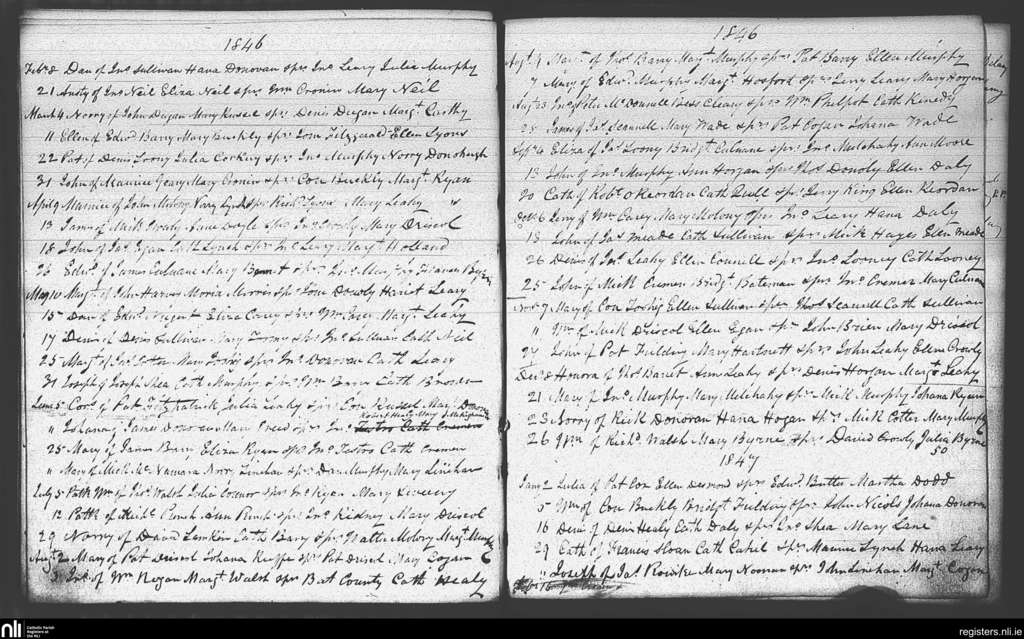 1846
Feb 8 Dan of Jno Sullivan Hana Donovan sprs Jno Leary Julia Murphy
21 Ansty of Jno Neil Eliza Neil sprs Wm Cronin Mary Neil
March 4 Norry of John Dugan Mary Russel sprs Denis Dugan Margt Carthy
11 Ellen of Edwd Barry Mary Buckly sprs Tom Fitzgerald Ellen Lyons
22 Pat of Denis Loony Julia Corkery sprs Jno Murphy Norry Donohugh
31 John of Maurice Geary Mary Cronin sprs Con Buckly Margt Ryan
April 9 Maurice of John Molony Norry Lynch sprs Mary Leahy
13 James of Mick Grady Anne Doyle sprs Jno Crowly Mary Driscol
18 John of Jas Egan Cath Lynch sprs Jno Leary Margt Holland
26 Edwd of James Culnane Mary sprs
May 10 Margt of John Harvey Maria Morris sprs Tom Dowly Hariet Leary
15 Dan of Edwd Nugent Eliza Casey sprs Margt Leahy
17 Denis of Denis Sullivan Mary sprs Jno Sullivan Cath Neil
25 Margt of Jno Cotter Mary sprs Jno Donovan Cath Leary
31 Joseph of Joseph Shea Cath Murphy sprs Wm Cath
June 5 Cors of Pat Fitzpatrick Julia Leahy sprs Con Russel Mary
" Johana of James Donovan sprs Jno
25 Mary of James Barry Eliza Ryan sprs Jno Cath Cremen
" Mary of Mich McNamara Norry Linehan sprs Dan Murphy Mary Linehan
July 5 Patk Wm of Thos Walsh Julia Connor sprs Jno Ryan Mary Sweeny
12 Patk of Mich Ann sprs Jno Kidney Mary Driscol
29 Norry of David Lomkin Cath Barry sprs Mattw Molony Margt
Augt 2 Mary of Pat Driscol Johana Keeffe sprs Pat Driscol Mary Cogan
3 Jno of Wm Regan Margt Walsh sprs Bat County Cath Healy
1846
Augt 4 Margt of Thos Barry Margt Murphy sprs Pat Barry Ellen Murphy
7 Mary of Edwd Murphy Margt Hosford sprs Jerry Leary Mary Horgan
Augt 23 Jno Peter McDonnell Cleary sprs Wm Philpot Cath Kenedy
25 James of Jas Scannell Mary Wade sprs Pat Cogan Johana Wade
Sept 6 Eliza of Jas Loony Bridgt Culnane sprs Jno Mulchahy Ann Moore
13 John of Jno Murphy Ann Horgan sprs Thos Donoly Ellen Daly
20 Cath of Robt O Reordan Cath Quill sprs Jerry King Ellen Reordan
Octr 6 Jerry of Wm Carey Mary Molony sprs Jno Leary Hana Daly
18 John of Jas Meade Cath Sullivan sprs Mick Hayes Ellen Meade
26 Denis of Jno Leahy Ellen Connell sprs Jno Looney Cath Looney
25 John of Mick Cremen Bridgt Bateman sprs Jno Cremen Mary Culnan
Novr 9 Mary of Con Toohy Ellen Sullivan sprs Thos Scanell Cath Sullivan
" Wm of Mick Driscol Ellen Egan sprs John Brien Mary Driscol
27 John of Pat Fielding Mary Hartnett sprs John Leahy Ellen Crowly
Decr 8 Honora of Thos Barret Ann Leahy sprs Denis Horgan Margt Leahy
21 Mary of Jno Murphy Mary Mulchahy sprs Mick Murphy Johana Ryan
23 Norry of Rick Donovan Hana Hogan sprs Mick Cotter Mary Murphy
26 Wm of Richd Walsh Mary Byrne sprs David Crowly Julia Byrne
50
1847
Jany 2 Julia of Pat Cox Ellen Desmond sprs Edwd Butler Martha Dodd
5 Wm of Con Buckly Bridgt Fielding sprs John Nicols Johana Donovan
16 Denis of Denis Healy Cath Daly sprs Jno Shea Mary Lane
29 Cath of Francis Sloan Cath Cahil sprs Maurice Lynch Hana Leary
" Joseph of Jas Rourke Mary Noonan sprs John Linehan Margt Cogan
nli
Catholic Parish
Registers at
the NLI
registers.nli.ie